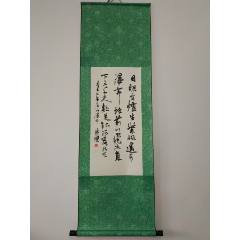 日照香爐生紫烟遥看
瀑布挂前川飛流直
下三千尺疑是銀河落九天